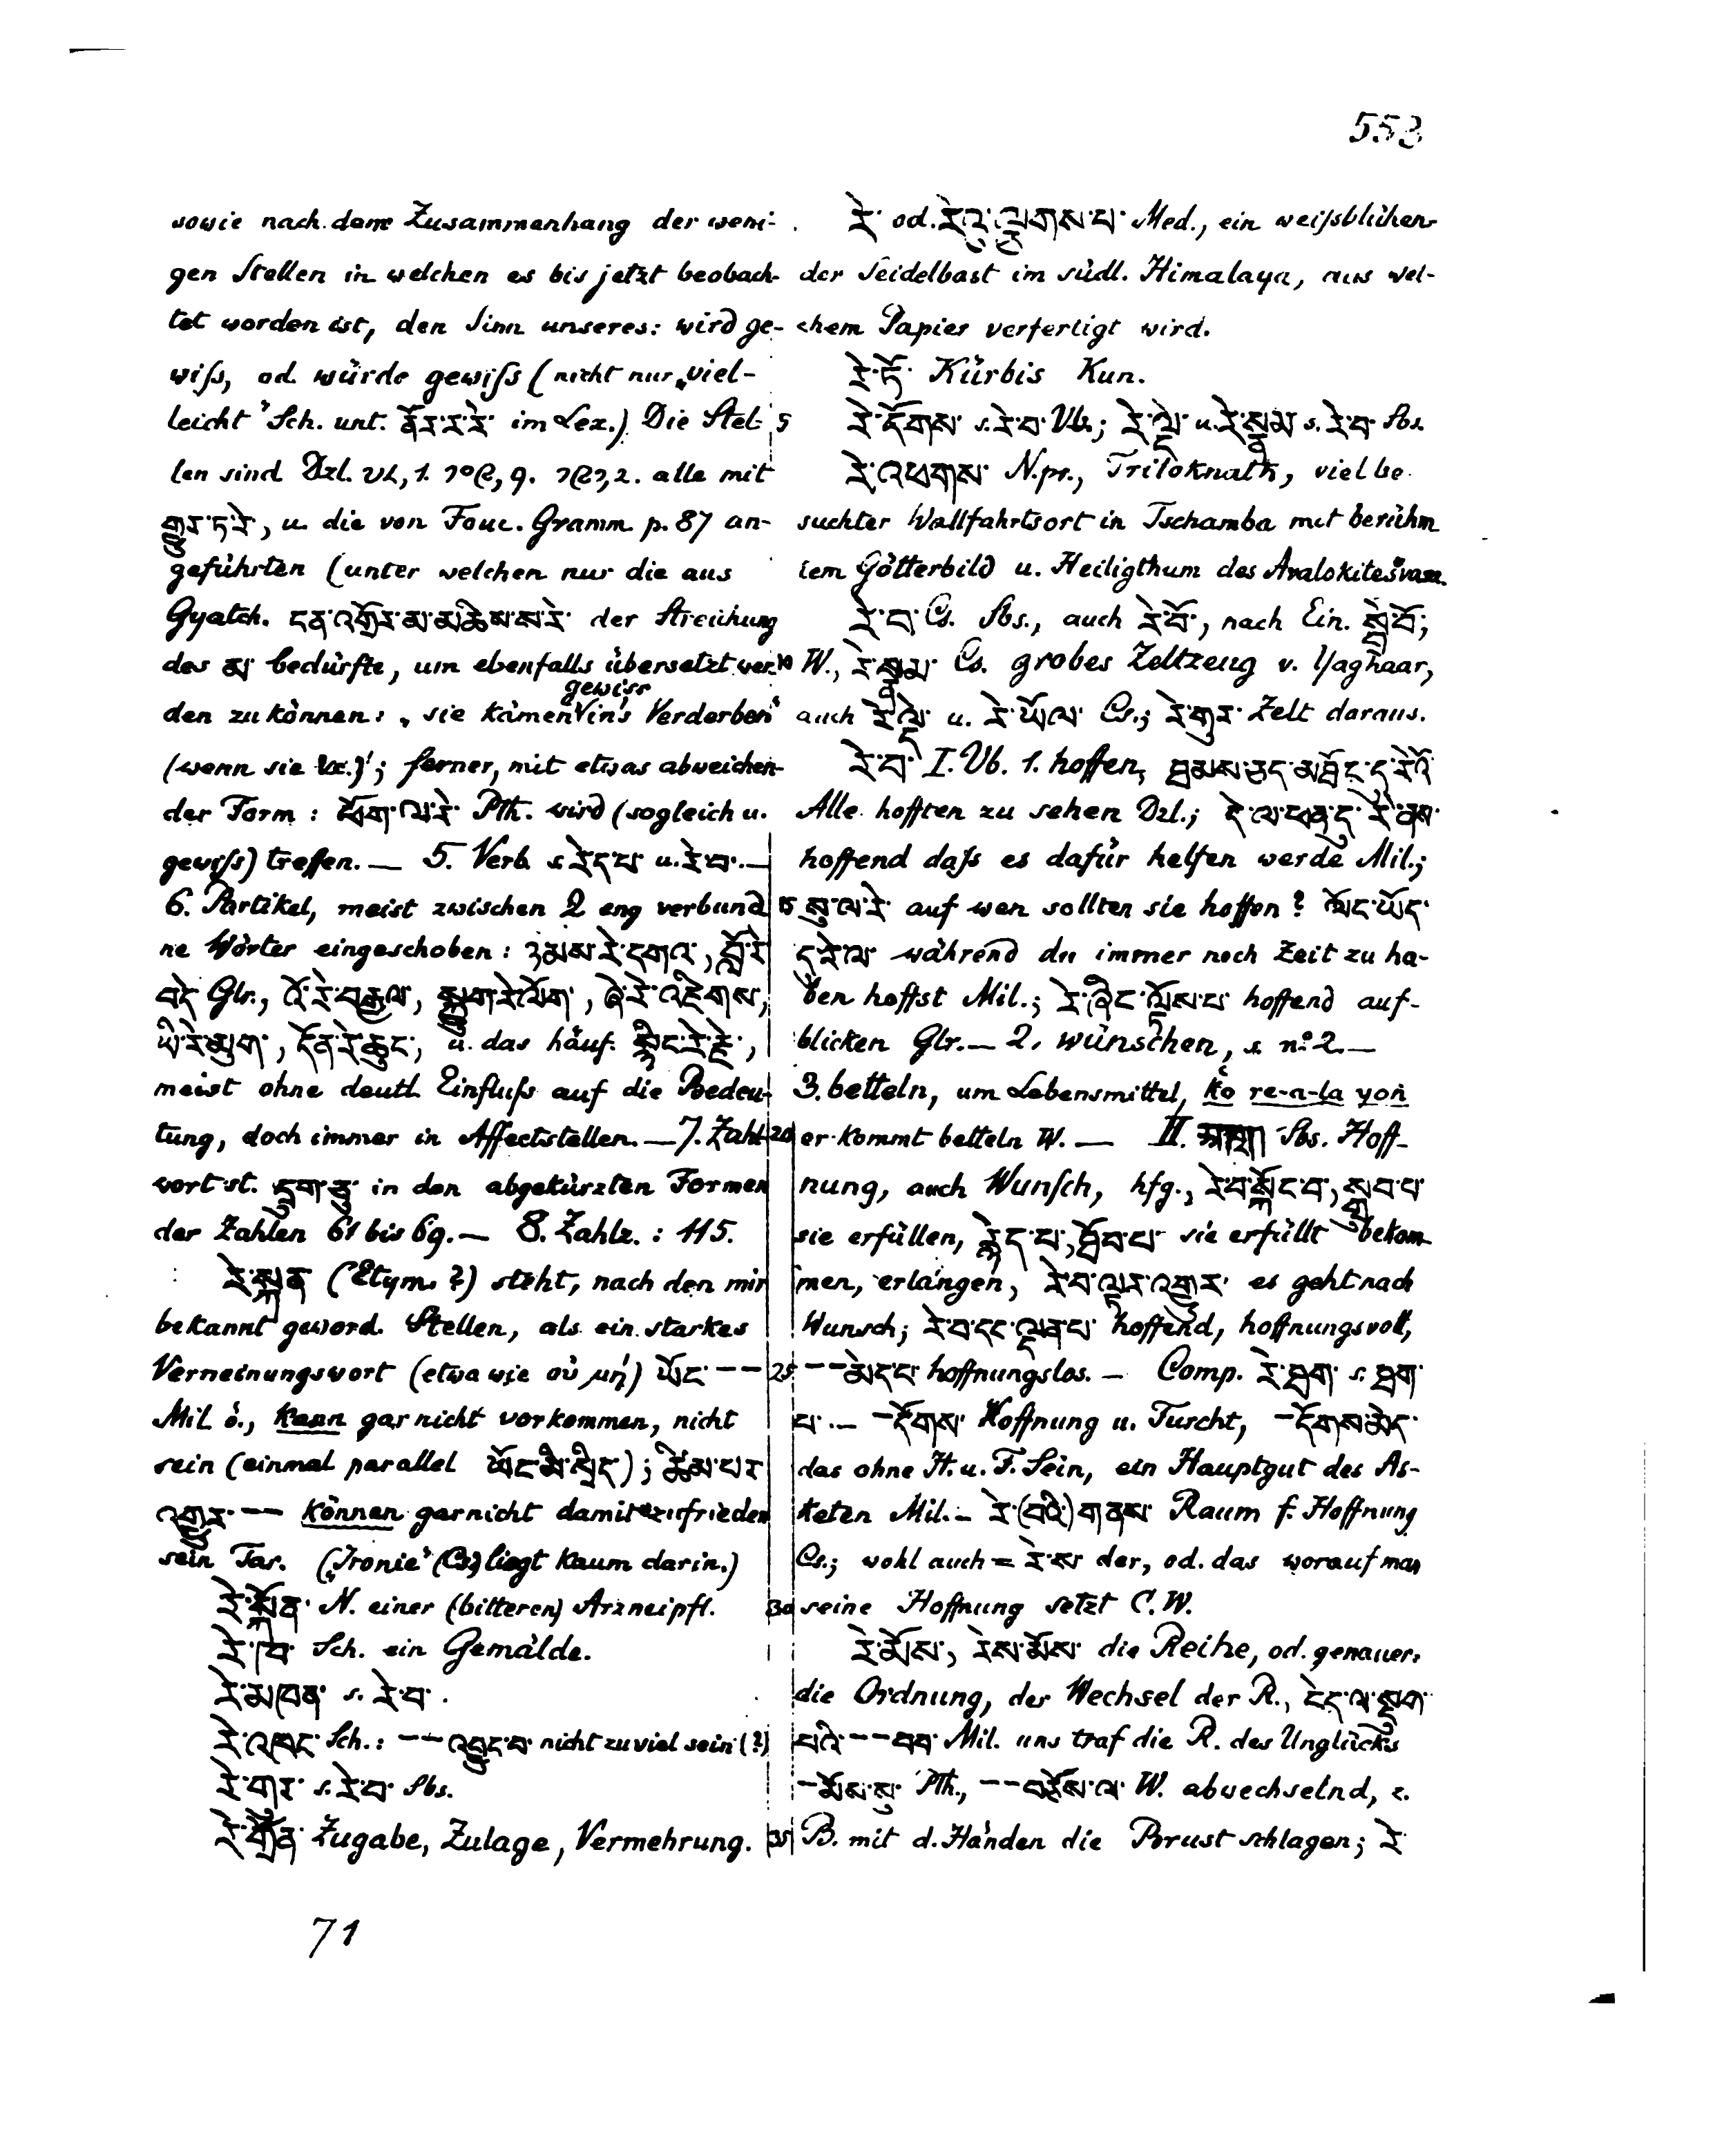 553
sowie nach dem Zusammenhang der weni-
gen Stellen in welchen es bis jetzt beobach-
tet worden ist, den Sinn unseres: wird ge-
wiſs, od. würde gewiſs (nicht nur „viel-
leicht" Sch. unt. ནོར་ར་རེ་ im Lex.) Die Stel-
len sind Dzl. alle mit
གྱུར་ཏ་རེ་, u. die von Fouc. Gramm p. 87 an-
geführten (unter welchen nur die aus
Gyatch. der Streichung
des མ་ bedürfte, um ebenfalls übersetzt wer-
den zu können: „sie kämen gewiss in's Verderben"
(wenn sie etc.); ferner, mit etwas abweichen-
der Form: ཕོག་ལ་རེ་ Pth. wird (sogleich u.
gewiſs) treffen. — 5. Verb. s. རེད་པ་ u. རེ་བ་. —
6. Partikel, meist zwischen 2 eng verbund
ne Wörter eingeschoben: ཉམས་རེ་དགའ་, བློ་རེ་
བདེ་ Glr., འོ་རེ་བརྒྱལ་, སྐྱུག་རེ་ལོག་, ཞེ་རེ་འཇིགས་,
ཡི་རེ་མུག་, དོན་རེ་ཆུང་, u. das häuf. སྙིང་རེ་རྗེ་,
meist ohne deutl. Einfluſs auf die Bedeu-
tung, doch immer in Affectstellen. — 7. Zahl-
wort st. དྲུག་ཅུ་ in den abgekürzten Formen
der Zahlen 61 bis 69. — 8. Zahlz.: 115.
རེ་སྐན་ (Etym.?) steht, nach den mir
bekannt geword. Stellen, als ein starkes
Verneinungswort (etwa wie οὐ μή) ཡོང་ ——
Mil ö., kann gar nicht vorkommen, nicht
sein (einmal parallel ཡོང་མི་སྲིད་); ཚིམ་པར་
འགྱུར་ — können gar nicht damit zufrieden
sein Tar. („Ironie" (Cs.) liegt kaum darin.)
རེ་སྐོན་ N. einer (bitteren) Arzneipfl.
རེ་ཁ་ Sch. ein Gemälde.
རེ་མཁན་ s. རེ་བ་.
རེ་འཁང་ Sch.: —— nicht zuviel sein (?)
རེ་གར་ s. རེ་བ་ Sbs.
Zugabe, Zulage, Vermehrung.
71
རེ་ od. རེ་འུ་ལྕགས་པ་ Med., ein weiſsblühen-
der Seidelbast im südl. Himalaya, aus wel-
chem Papier verfertigt wird.
རེ་ཏོ་ Kürbis Kun.
5 རེ་དོགས་ s. རེ་བ་ Vb.; རེ་ལྡེ་ u. རེ་སྣམ་ s. རེ་བ་ Sbs.
རེ་འཕགས་ N.pr., Triloknath, viel be
suchter Wallfahrtsort in Tschamba mit berühm
tem Götterbild u. Heiligthum des Avalokiteṡvara.
རེ་བ་ Cs. Sbs., auch རེ་བོ་, nach Ein. སྲེ་བོ་;
10 W., རེ་སྣམ་ Cs. grobes Zeltzeug v. Yaghaar,
auch རེ་ལྡེ་ u. རེ་ཡོལ་ Cs.; རེ་གུར་ Zelt daraus.
རེ་བ་ I. Vb. 1. hoffen, ཐམས་ཅད་མཐོང་དུ་རེའོ་
Alle hofften zu sehen Dzl.; དེ་ལ་ཕན་དུ་རེ་ནས་
hoffend daſs es dafür helfen werde Mil.;
15 སུ་ལ་རེ་ auf wen sollten sie hoffen? ལོང་ཡོད་
དུ་རེ་ལ་ während du immer noch Zeit zu ha-
ben hoffst Mil.; རེ་ཞིང་ལྟོས་པ་ hoffend auf-
blicken Glr. — 2. wünschen, s. no. 2. —
3. betteln, um Lebensmittel, ko re-a-la yoṅ
20 er kommt betteln W. — II. Sbs. Hoff-
nung, auch Wunſch, hfg., རེ་བ་སྐོང་བ་, སྒྲུབ་པ་
sie erfüllen, རྙེད་པ་, ཐོབ་པ་ sie erfüllt bekom
men, erlangen, རེ་བ་ལྟར་འགྱུར་ es geht nach
Wunsch; རེ་བ་དང་ལྡན་པ་ hoffend, hoffnungsvoll,
25 ——མེད་པ་ hoffnungslos. — Comp. རེ་ཐག་ s. ཐག་
པ་. — —དོགས་ Hoffnung u. Furcht, —དོགས་མེད་
das ohne H. u. F. Sein, ein Hauptgut des As-
keten Mil. — རེ་(བའི་)གནས་ Raum f. Hoffnung
Cs.; wohl auch = རེ་ས་ der, od. das worauf man
30 seine Hoffnung setzt C. W.
རེ་མོས་, རེས་མོས་ die Reihe, od. genauer:
die Ordnung, der Wechsel der R., ངེད་ལ་སྡུག་
པའི་——བབ་ Mil. uns traf die R. des Unglücks
—མོས་སུ་ Pth., —— W. abwechselnd, z.
35 B. mit d. Händen die Brust schlagen; རེ་